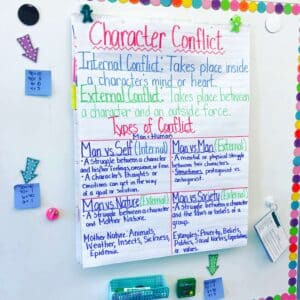 Character Conflict
Internal Conflict: Takes place inside
a character's mind or heart.
External Conflict: Takes place between
a character and an outside force.
Types of Conflict
Man = Human
Man vs Self (Internal)
• A struggle between a character
and his/her
• A character's thoughts or
emotions can get in the way
of a goal or solution.
Man vs Man (External)
• A mental or physical struggle
between two characters.
• Sometimes, protagonist vs.
antagonist!
Man vs Nature (External)
• A struggle between a character
and Mother Nature.
Mother Nature: Animals,
Weather, Insects, Sickness,
Epidemic
Man vs Society (External)
• A struggle between a character
and the laws or beliefs of a
group.
Examples: Poverty, Beliefs,
Politics, Social Norms,
or values.